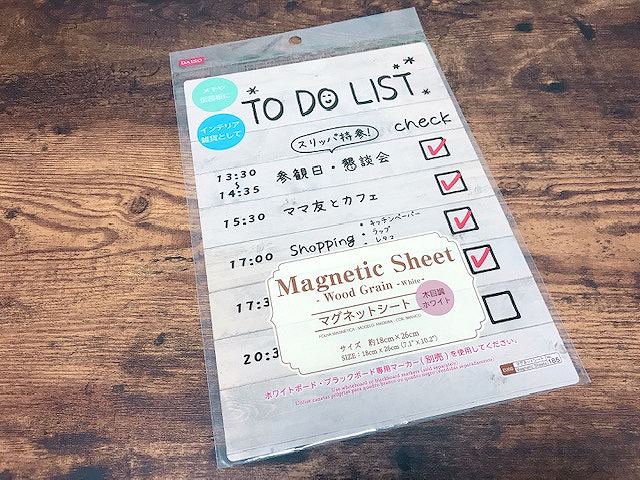 DAISO
メモや
伝言板に
インテリア
雑貨として
TO DO LIST
check
スリッパ持参!
13:30
〜
14:35
参観日・懇談会
15:30
ママ友とカフェ
17:00
Shopping
・キッチンペーパー
・ラップ
・レタス
17:3
20:3
Magnetic Sheet
- Wood Grain -White-
マグネットシート
木目調
ホワイト
FOLHA MAGNÉTICA - MODELO: MADEIRA - COR: BRANCO
サイズ 約18cm×26cm
SIZE : 18cm x 26cm (7.1" x 10.2")
ホワイトボード・ブラックボード専用マーカー(別売)を使用してください。
Use whiteboard or blackboard markers (sold separately).
165